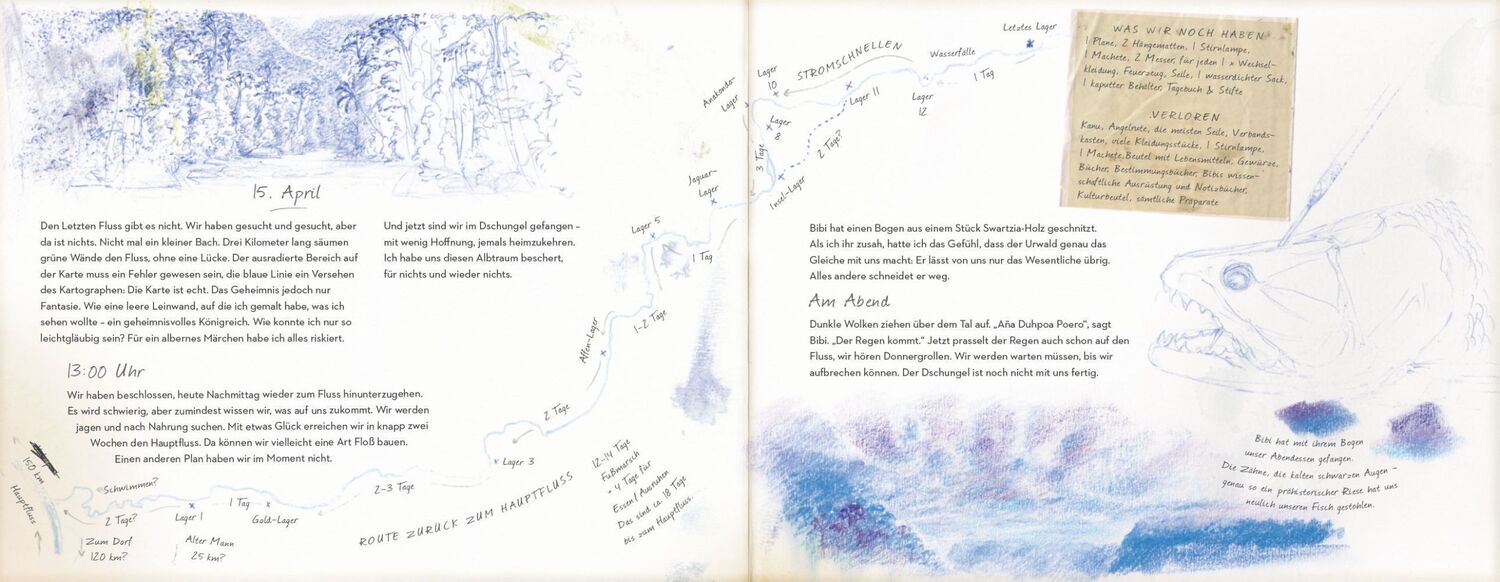 15. April
Den Letzten Fluss gibt es nicht. Wir haben gesucht und gesucht, aber
da ist nichts. Nicht mal ein kleiner Bach. Drei Kilometer lang säumen
grüne Wände den Fluss, ohne eine Lücke. Der ausradierte Bereich auf
der Karte muss ein Fehler gewesen sein, die blaue Linie ein Versehen
des Kartographen: Die Karte ist echt. Das Geheimnis jedoch nur
Fantasie. Wie eine leere Leinwand, auf die ich gemalt habe, was ich
sehen wollte – ein geheimnisvolles Königreich. Wie konnte ich nur so
leichtgläubig sein? Für ein albernes Märchen habe ich alles riskiert.
Und jetzt sind wir im Dschungel gefangen –
mit wenig Hoffnung, jemals heimzukehren.
Ich habe uns diesen Albtraum beschert,
für nichts und wieder nichts.
13:00 Uhr
Wir haben beschlossen, heute Nachmittag wieder zum Fluss hinunterzugehen.
Es wird schwierig, aber zumindest wissen wir, was auf uns zukommt. Wir werden
jagen und nach Nahrung suchen. Mit etwas Glück erreichen wir in knapp zwei
Wochen den Hauptfluss. Da können wir vielleicht eine Art Floß bauen.
Einen anderen Plan haben wir im Moment nicht.
150 km
Hauptfluss
Schwimmen?
2 Tage?
Zum Dorf
120 km?
Lager 1
Alter Mann
25 km?
1 Tag
Gold-Lager
2–3 Tage
Lager 3
ROUTE ZURÜCK ZUM HAUPTFLUSS
2 Tage
Affen-Lager
1–2 Tage
Lager 5
1 Tag
Jaguar-
Lager
12–14 Tage
Fußmarsch
+ 4 Tage für
Essen / Ausruhen
Das sind ca. 18 Tage
bis zum Hauptfluss.
Anakonda-
Lager
Lager
10
Lager
8
3 Tage
Insel-Lager
2 Tage?
Lager 11
STROMSCHNELLEN
Wasserfälle
Lager
12
1 Tag
Letztes Lager
WAS WIR NOCH HABEN
1 Plane, 2 Hängematten, 1 Stirnlampe,
1 Machete, 2 Messer, für jeden 1 x Wechsel-
kleidung, Feuerzeug, Seile, 1 wasserdichter Sack,
1 kaputter Behälter, Tagebuch & Stifte
VERLOREN
Kanu, Angelrute, die meisten Seile, Verbands-
kasten, viele Kleidungsstücke, 1 Stirnlampe,
1 Machete, Beutel mit Lebensmitteln, Gewürze,
Bücher, Bestimmungsbücher, Bibis wissen-
schaftliche Ausrüstung und Notizbücher,
Kulturbeutel, sämtliche Präparate
Bibi hat einen Bogen aus einem Stück Swartzia-Holz geschnitzt.
Als ich ihr zusah, hatte ich das Gefühl, dass der Urwald genau das
Gleiche mit uns macht: Er lässt von uns nur das Wesentliche übrig.
Alles andere schneidet er weg.
Am Abend
Dunkle Wolken ziehen über dem Tal auf. „Aña Duhpoa Poero“, sagt
Bibi. „Der Regen kommt.“ Jetzt prasselt der Regen auch schon auf den
Fluss, wir hören Donnergrollen. Wir werden warten müssen, bis wir
aufbrechen können. Der Dschungel ist noch nicht mit uns fertig.
Bibi hat mit ihrem Bogen
unser Abendessen gefangen.
Die Zähne, die kalten schwarzen Augen –
genau so ein prähistorischer Riese hat uns
neulich unseren Fisch gestohlen.